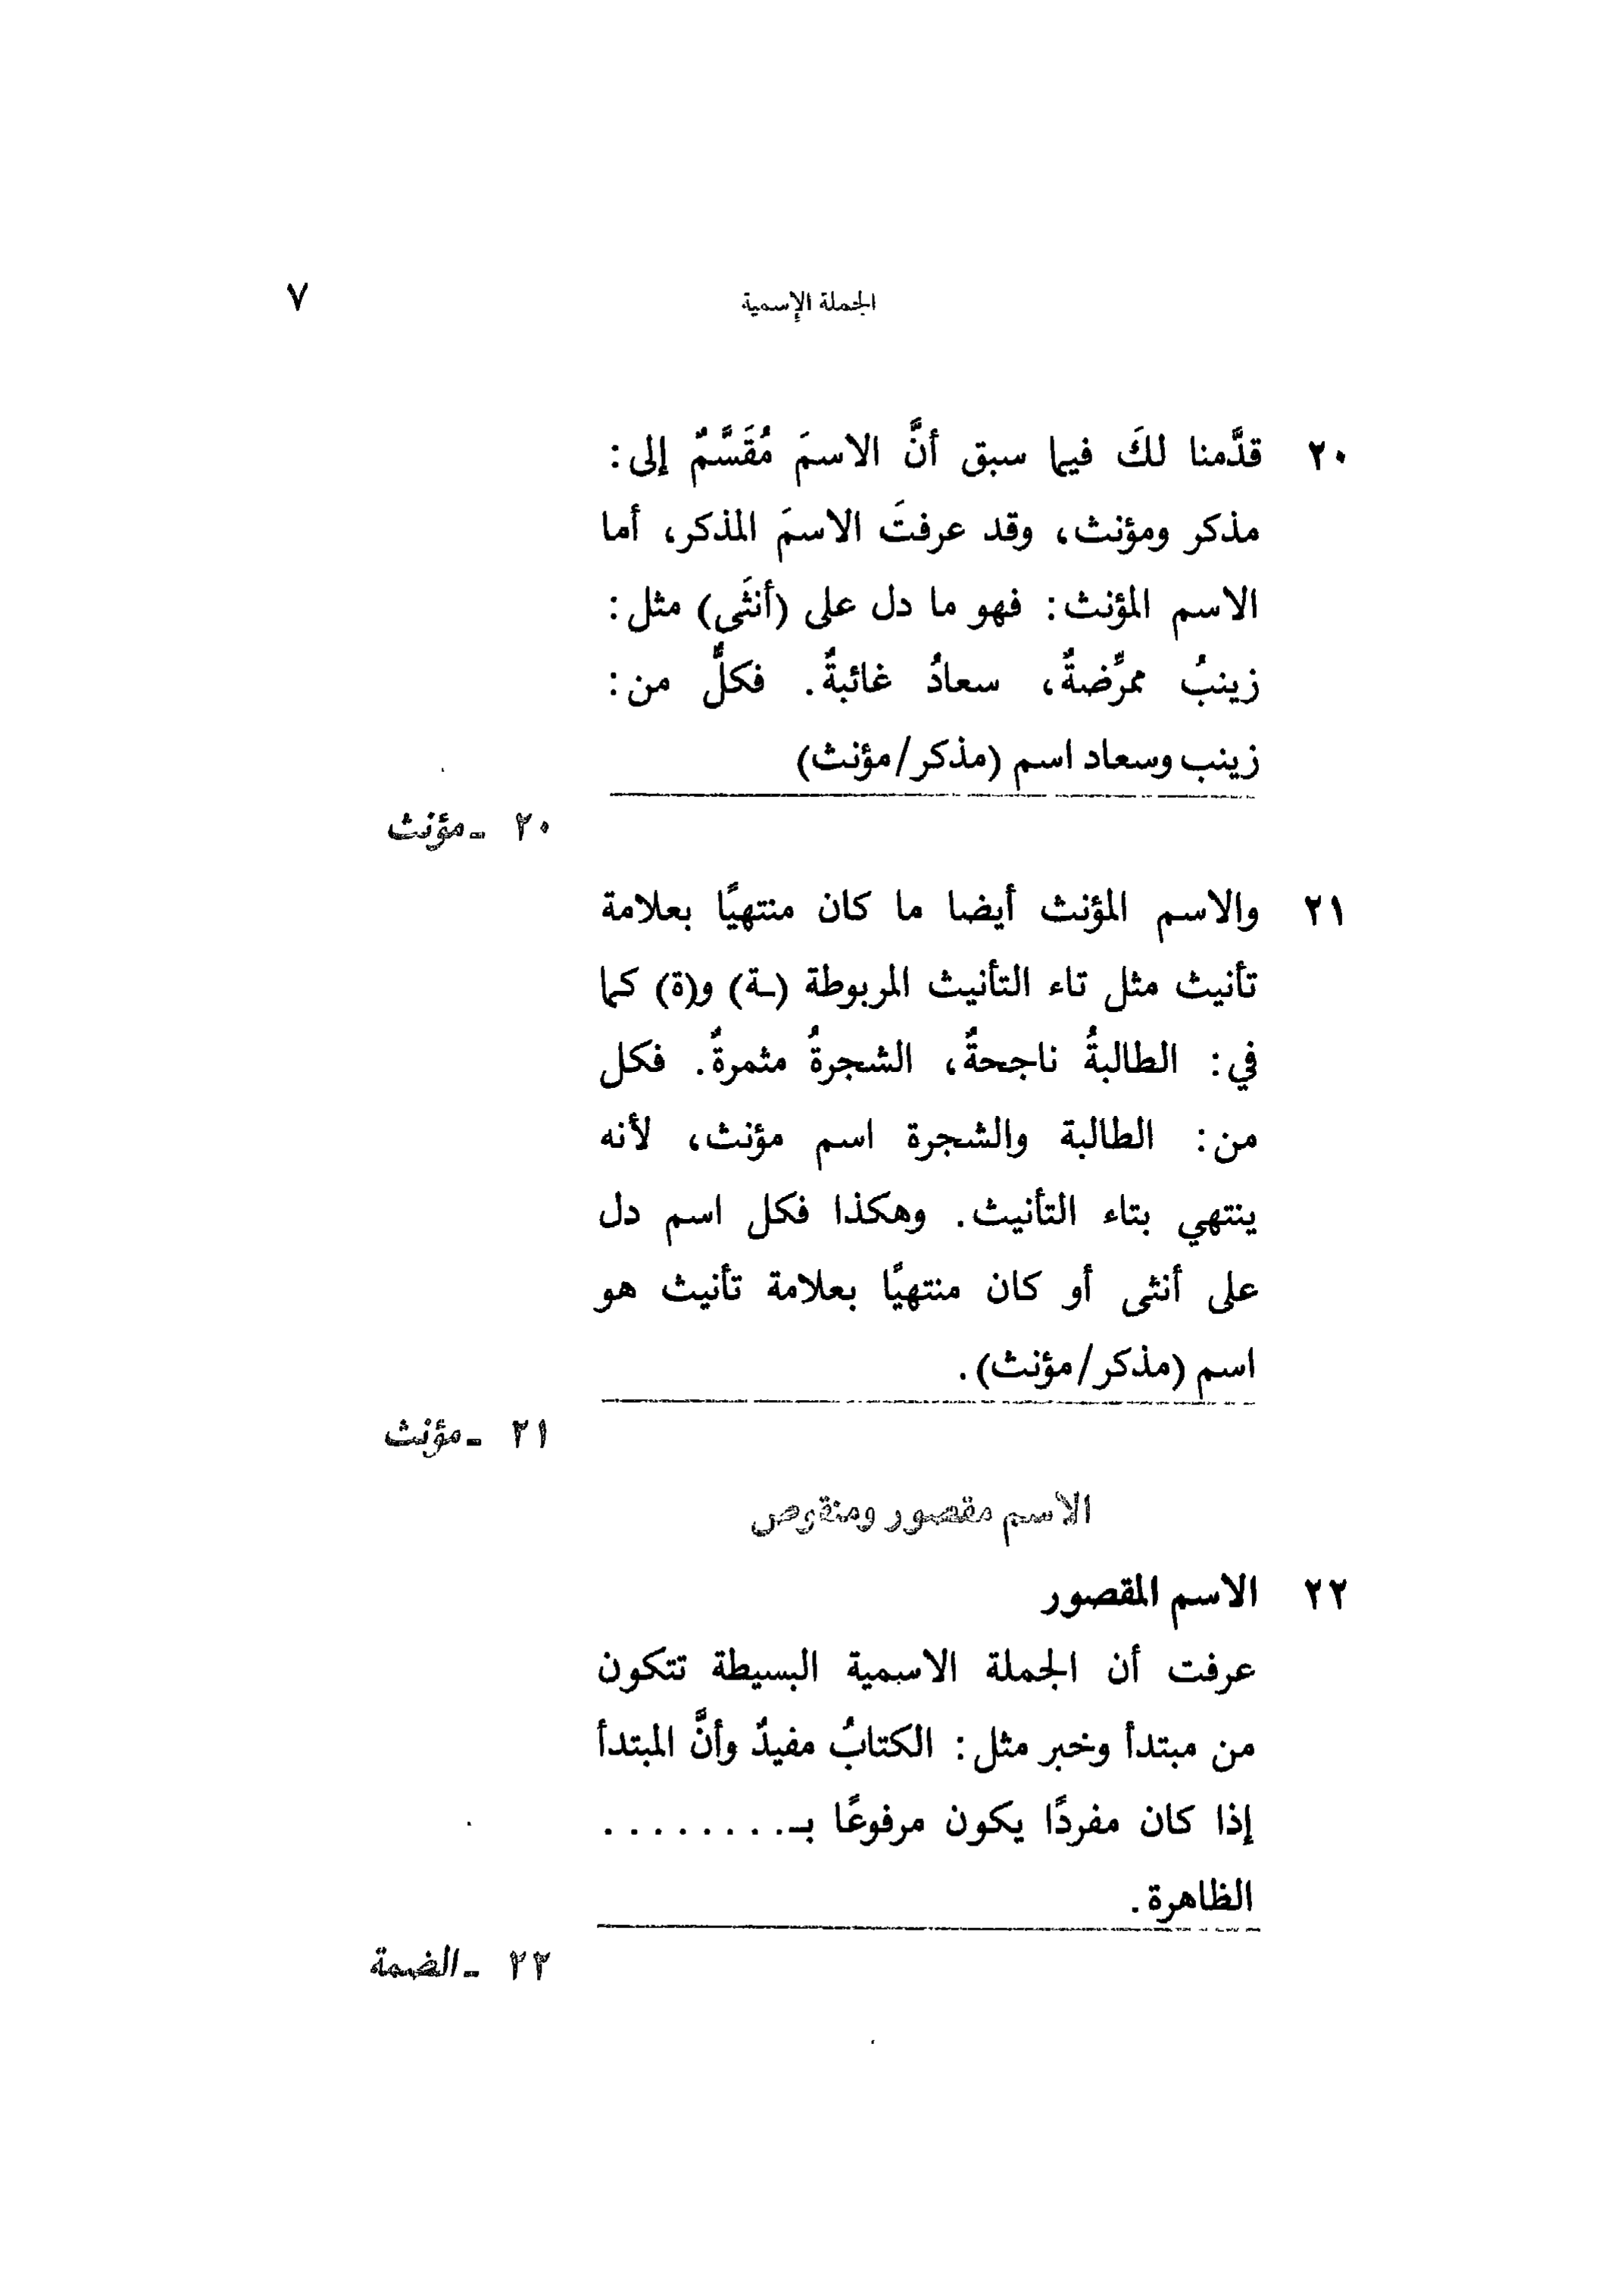 الجملة الإسمية ٧
٢٠ قدَّمنا لكَ فيما سبق أنَّ الاسمَ مُقَسَّمٌ إلى :
مذكر ومؤنث، وقد عرفتَ الاسمَ المذكر، أما
الاسم المؤنث : فهو ما دل على (أنثَى) مثل :
زينبُ ممرِّضةٌ، سعادُ غائبةٌ. فكلٌّ من :
زينب وسعاد اسم (مذكر/مؤنث)
٢٠ ـ مؤنث
٢١ والاسم المؤنث أيضا ما كان منتهيًا بعلامة
تأنيث مثل تاء التأنيث المربوطة (ـة) و(ة) كما
في : الطالبةُ ناجحةٌ، الشجرةُ مثمرةٌ. فكل
من : الطالبة والشجرة اسم مؤنث، لأنه
ينتهي بتاء التأنيث. وهكذا فكل اسم دل
على أنثى أو كان منتهيًا بعلامة تأنيث هو
اسم (مذكر/مؤنث).
٢١ ـ مؤنث
الاسم مقصور ومنقوص
٢٢ الاسم المقصور
عرفت أن الجملة الاسمية البسيطة تتكون
من مبتدأ وخبر مثل : الكتابُ مفيدٌ وأنَّ المبتدأ
إذا كان مفردًا يكون مرفوعًا بـ........
الظاهرة.
٢٢ ـ الضمة